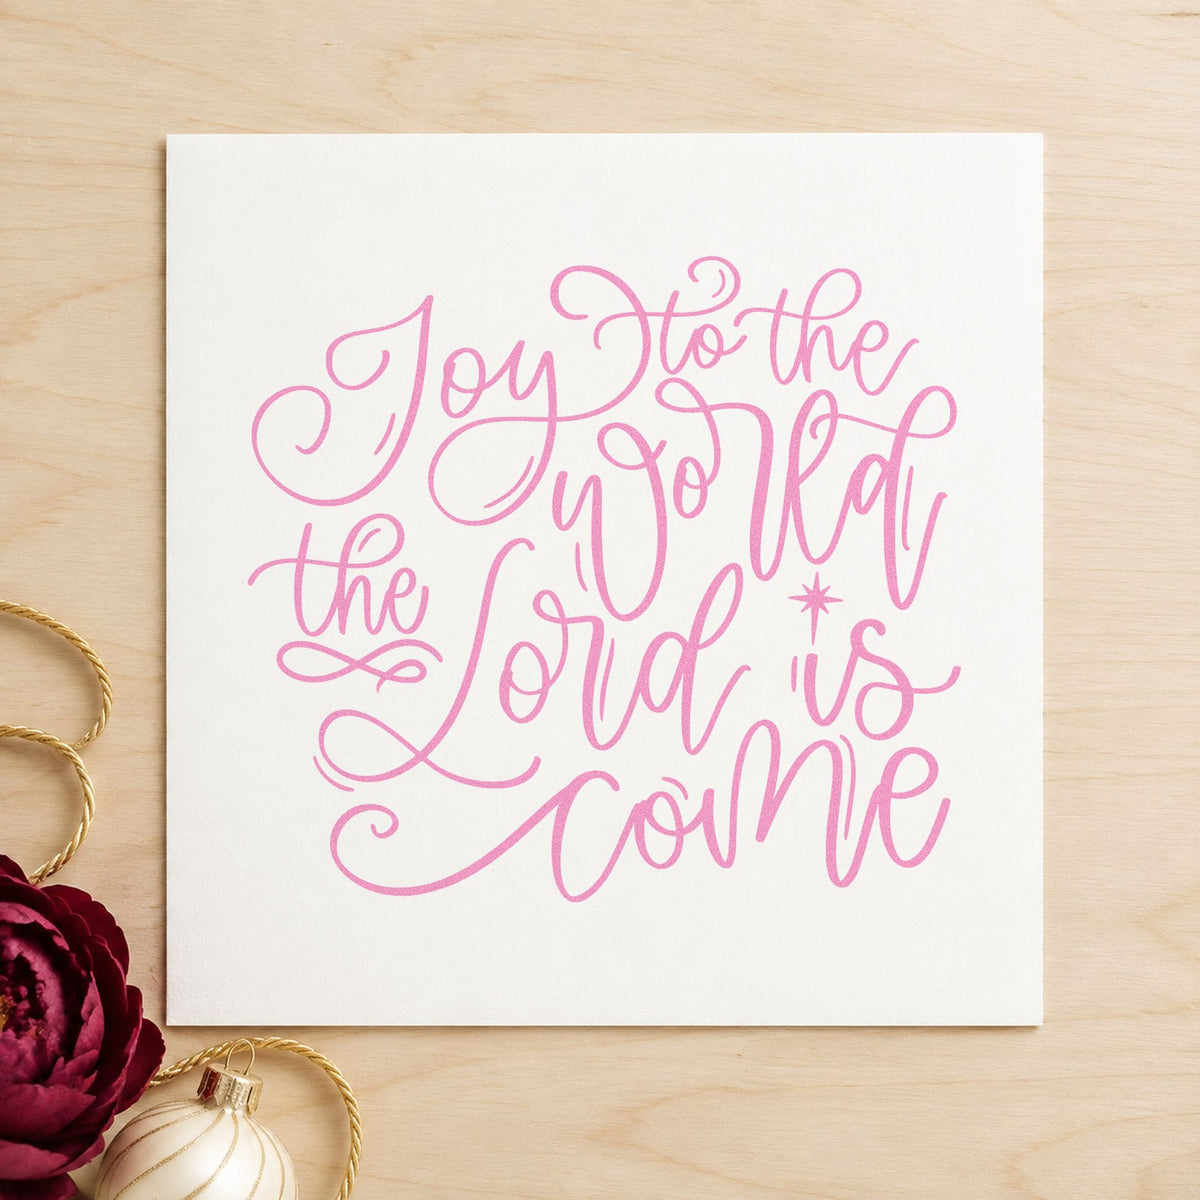 Joy to the
World
the Lord is
come